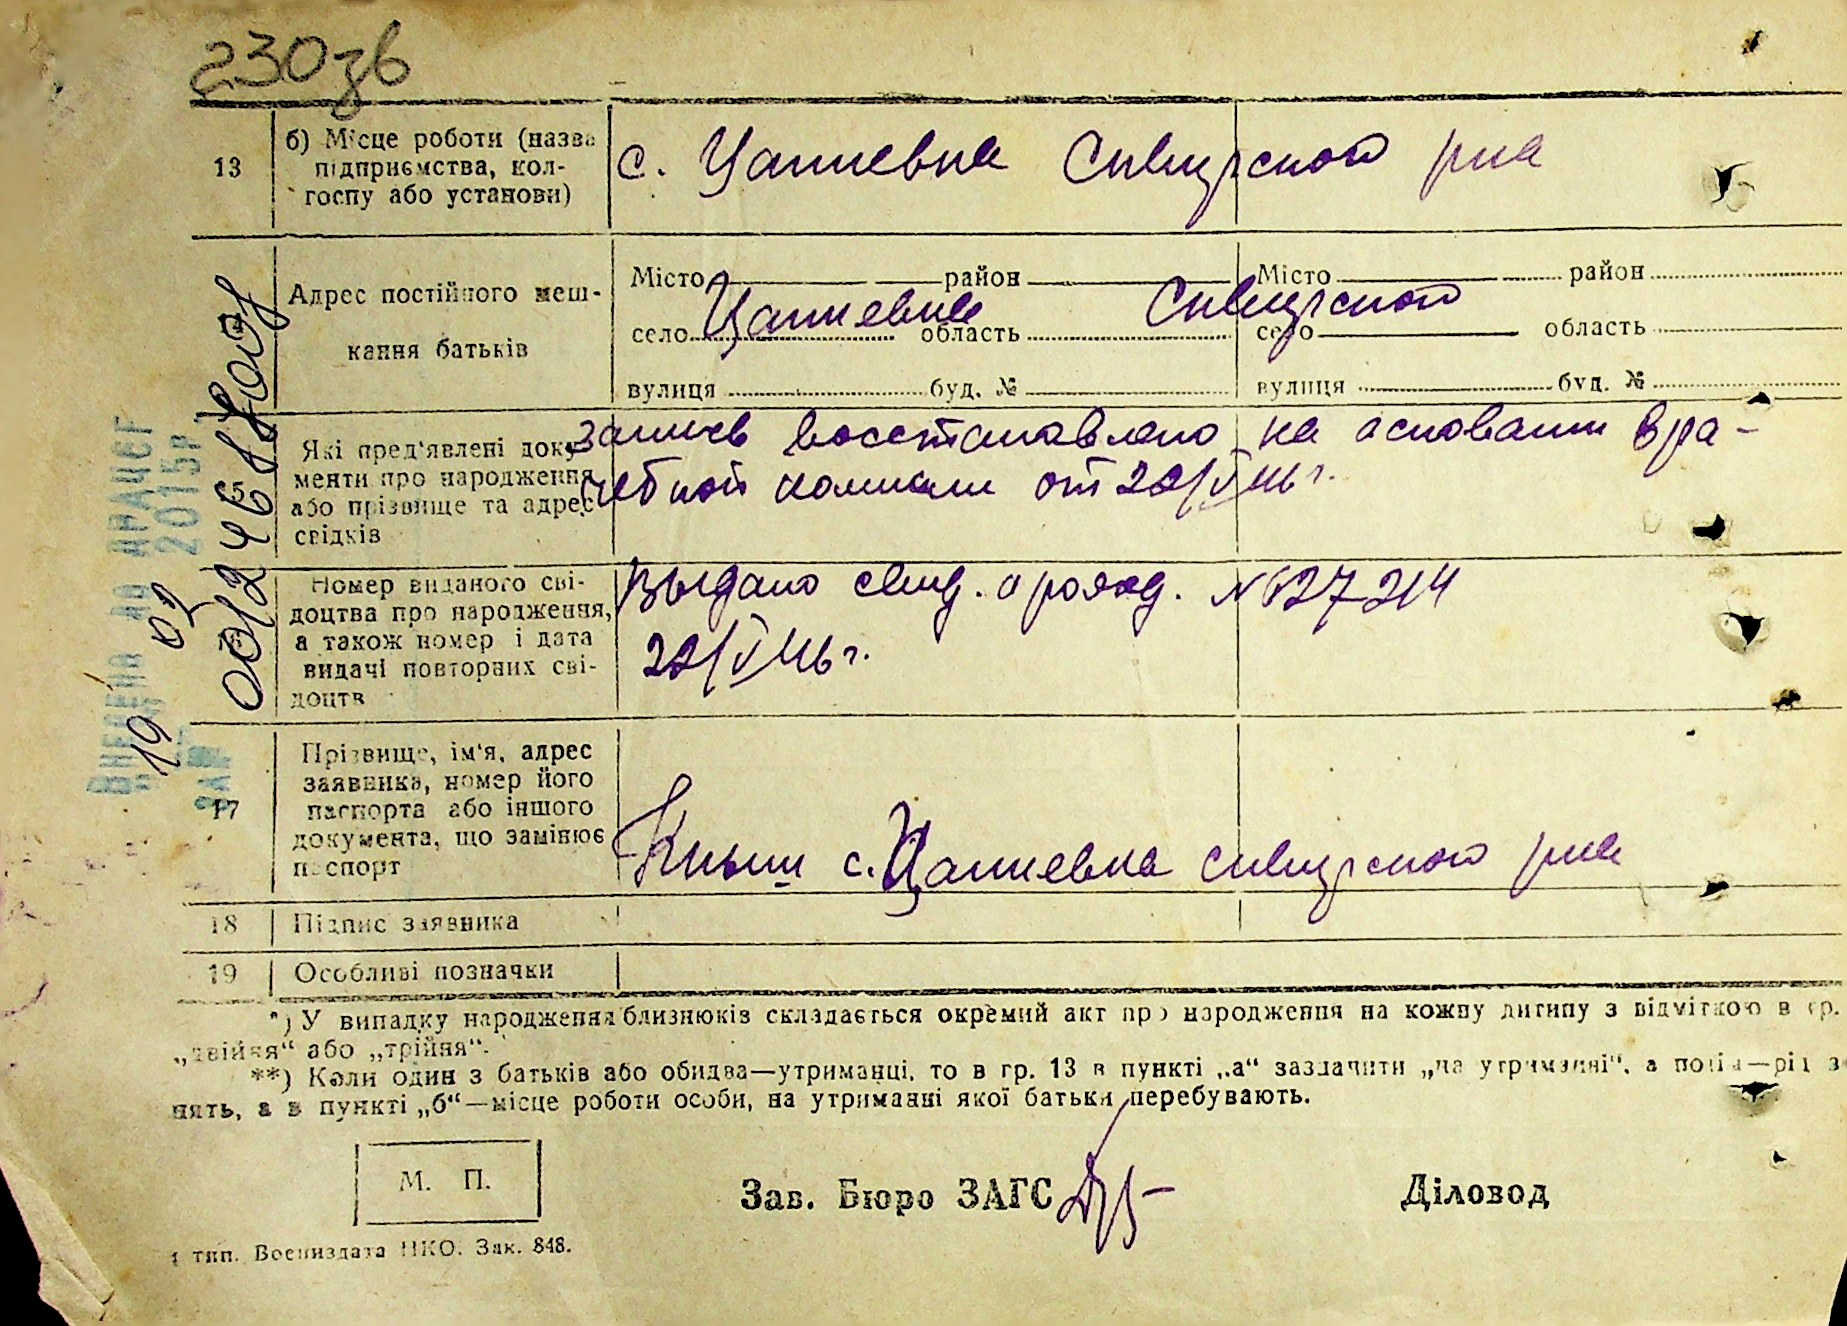 230зв
13
б) Місце роботи (назва
підприємства, кол-
госпу або установи)
с. Цапиевка Сквирского р-на
Адрес постійного меш-
кання батьків
Місто район Місто район
село Цапиевка область Сквирского село область
вулиця буд. № вулиця буд. №
Які пред'явлені доку-
менти про народження
або прізвище та адрес
свідків
запись восстановлено на основании Вра-
чебной комиссии от 22/V 46 г.
Номер виданого сві-
доцтва про народження,
а також номер і дата
видачі повторних сві-
доцтв
Выдано свид. о рожд. № 27214
22/V 46 г.
17
Прізвище, ім'я, адрес
заявника, номер його
паспорта або іншого
документа, що замінює
паспорт
с. Цапиевка Сквирского р-на
18 Підпис заявника
19 Особливі позначки
*) У випадку народження близнюків складається окремий акт про народження на кожну дитину з відміткою в гр.
„двійня“ або „трійня“.
**) Коли один з батьків або обидва—утриманці, то в гр. 13 в пункті „а“ зазначити „на утриманні“, а потім—рід за-
нять, а в пункті „б“—місце роботи особи, на утриманні якої батьки перебувають.
М. П.
Зав. Бюро ЗАГС
Діловод
1 тип. Воениздата НКО. Зак. 848.
19 02
2015р